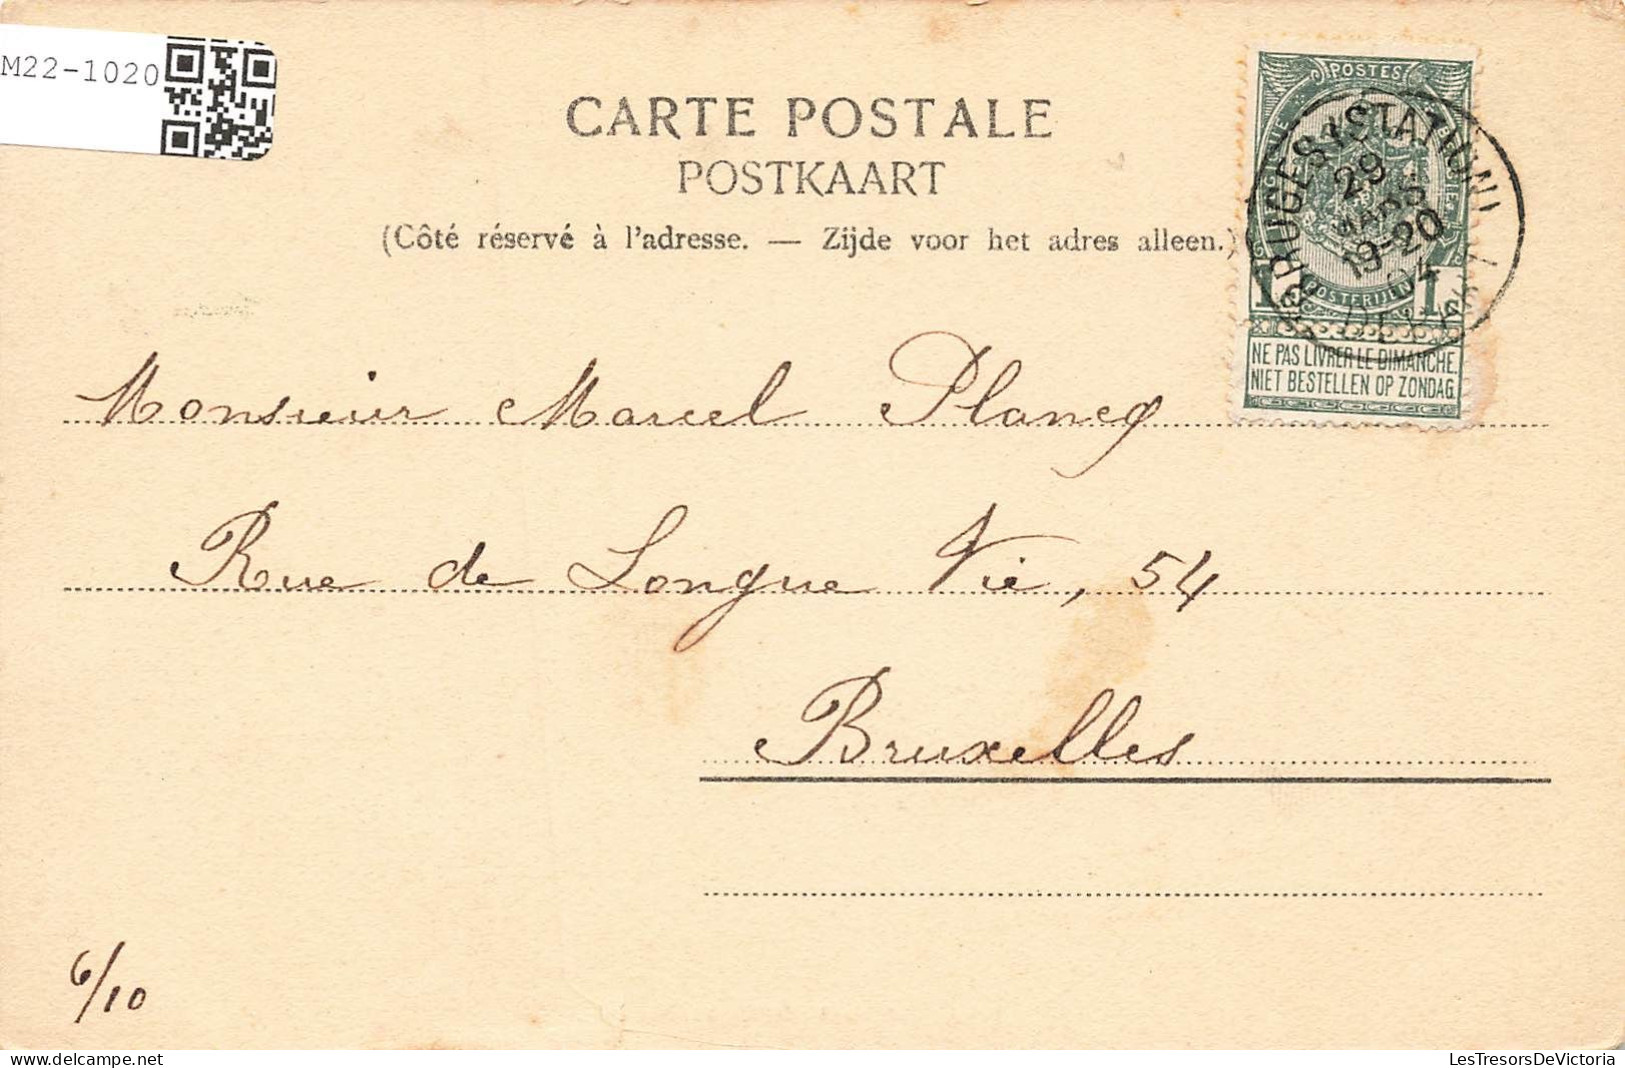 M22-1020
CARTE POSTALE
POSTKAART
(Côté réservé à l'adresse. — Zijde voor het adres alleen.)
POSTES
BRUGES (STATION)
29
MARS
19-20
04
1 POSTERIJEN 1
NE PAS LIVRER LE DIMANCHE.
NIET BESTELLEN OP ZONDAG.
Monsieur Marcel Plancq
Rue de Longue Vie, 54
Bruxelles
6/10
LesTresorsDeVictoria